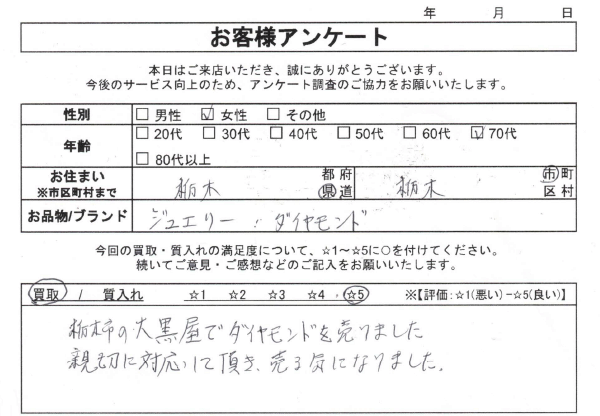 年 月 日
お客様アンケート
本日はご来店いただき、誠にありがとうございます。
今後のサービス向上のため、アンケート調査のご協力をお願いいたします。
性別 □ 男性 ☑ 女性 □ その他
年齢 □ 20代 □ 30代 □ 40代 □ 50代 □ 60代 ☑ 70代
□ 80代以上
お住まい ※市区町村まで 栃木 都 府 県 道 栃木 市 町 区 村
お品物/ブランド ジュエリー . ダイヤモンド
今回の買取・質入れの満足度について、☆1～☆5に○を付けてください。
続いてご意見・ご感想などのご記入をお願いいたします。
買取 / 質入れ ☆1 ☆2 ☆3 ☆4 ☆5 ※【評価:☆1(悪い)−☆5(良い)】
栃市の大黒屋でダイヤモンドを売りました
親切に対応して頂き、売る気になりました.